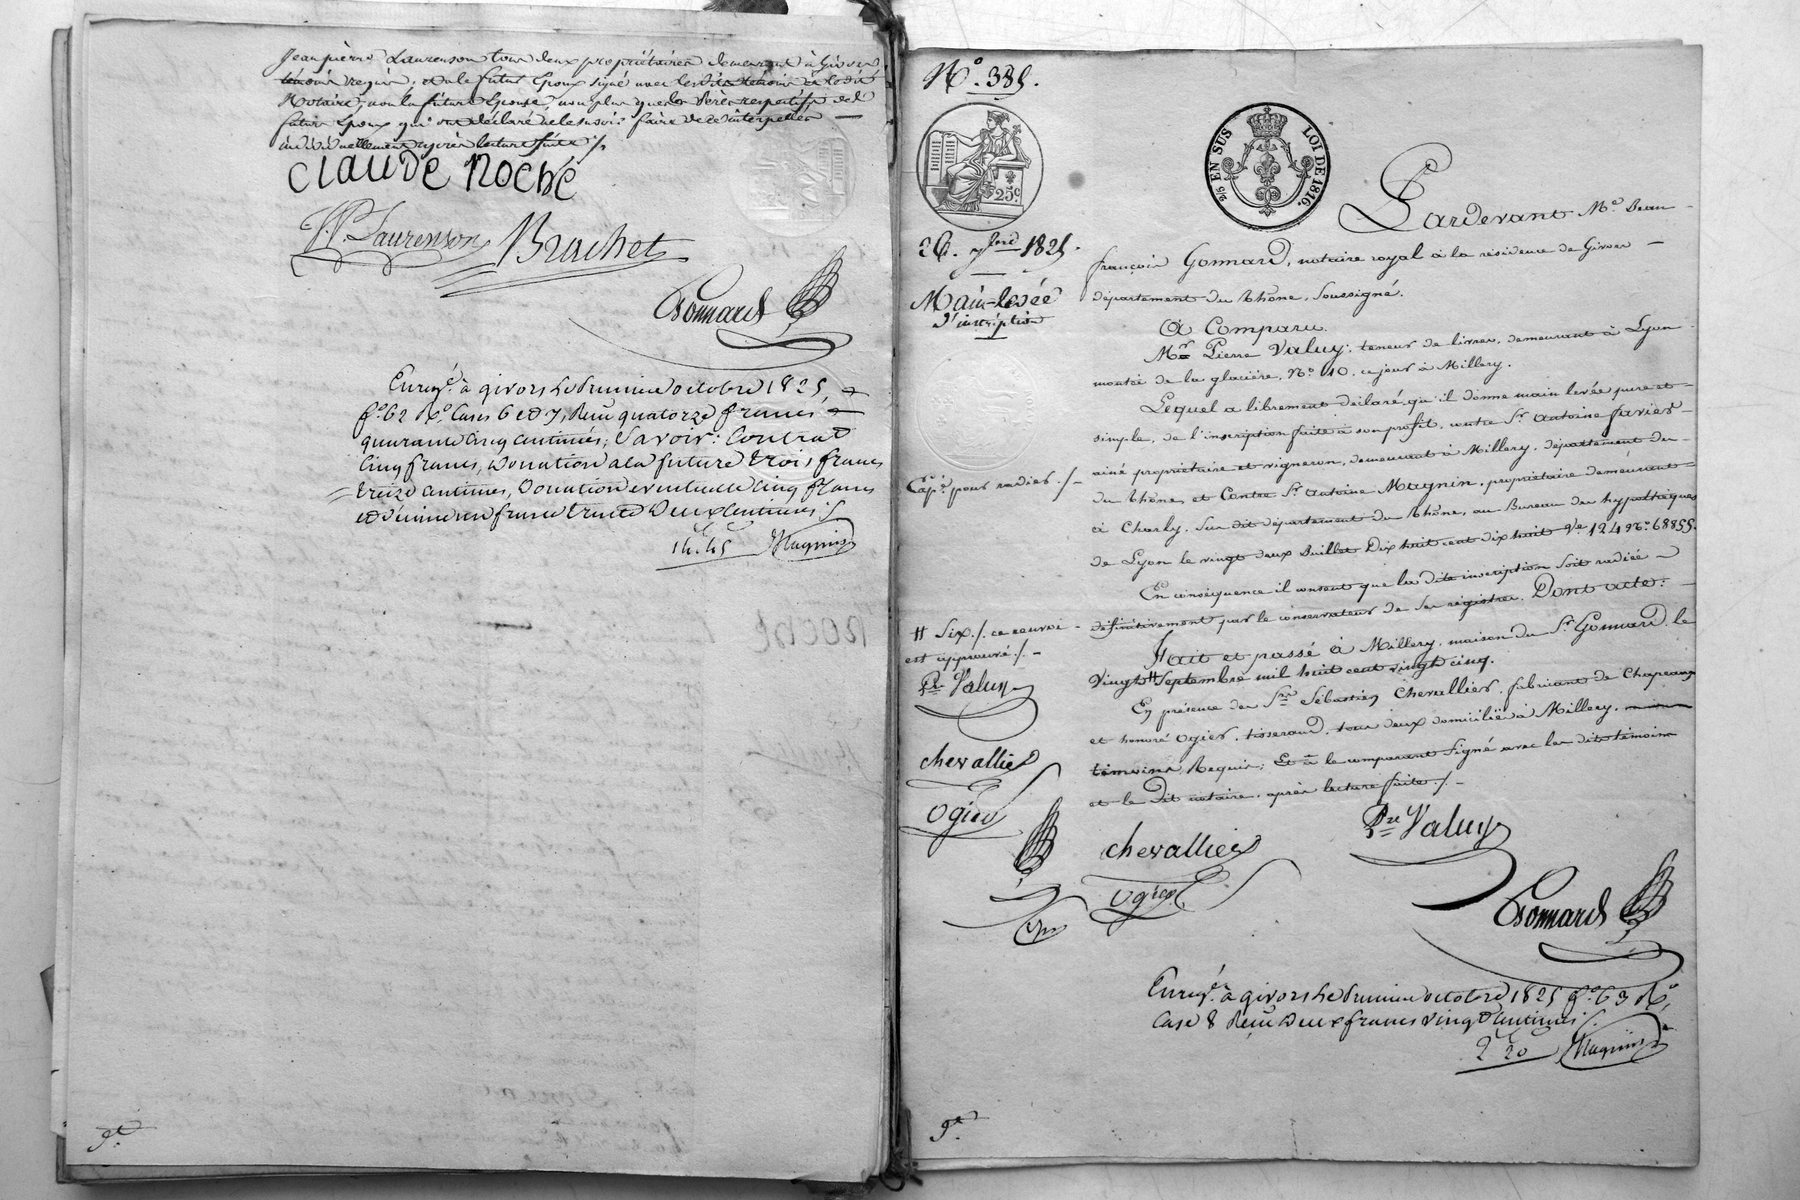 Jean pierre Laurenson tous deux propriétaires demeurant à Givors
témoins requis, et le futur Epoux signé avec lesdits témoins et ledit
Notaire, non la future Epouse, non plus que les Pères respectifs des
futurs Epoux qui ont déclaré ne le savoir faire de ce interpellés
individuellement après lecture faite ./.
Claude Roche
J. P. Laurenson Brachet
Gonnard
Enregé. à givors le premier octobre 1825,
fo. 62 Ro. Cases 6 et 7, Reçu quatorze francs
quarante cinq centimes, Savoir : Contrat
Cinq francs, Donation a la future trois francs
treize centimes, Donation eventuelle cinq francs
et dixieme un franc trente deux Centimes ./.
14. 45 Magnin
ge.
No. 385.
25c.
2/5 EN SUS LOI DE 1816.
26. 7bre 1825.
Main-levée
d'inscription
Pardevant Me. Jean
françois Gonnard, notaire royal à la résidence de Givors
département du Rhône, soussigné.
A Comparu.
Mr. Pierre Valuy, teneur de livres, demeurant à Lyon
montée de la glacière, No. 10, ce jour à Millery.
Lequel a librement déclaré qu'il donne main levée pure et
simple, de l'inscription faite à son profit, contre Sr. Antoine favier
ainé propriétaire et vigneron, demeurant à Millery, département du
Rhône, et Contre Sr. Antoine Magnin, propriétaire demeurant
à Charly, sur dit département du Rhône, au Bureau des hypothèques
de Lyon le vingt deux Juillet Dix huit cent dix huit Ve. 124 No. 68855.
En conséquence il consent que la dite inscription soit radiée
définitivement par le conservateur de ses registres. Dont acte :
Fait et passé à Millery, maison du Sr. Gonnard, le
Vingt # Septembre mil huit cent vingt cinq.
En présence des Srs. Sébastien Chevallier, fabricant de Chapeaux
et honoré Ogier, tisserand, tous deux domiciliés à Millery,
témoins Requis; Et a le comparant signé avec les dits témoins
et le Dit notaire, après lecture faite ./.
Expé. pour radier ./.
# Six ./. ce renvoi
est approuvé ./.
Pre Valuy
chevallier
ogier
Pre Valuy
chevallier
ogier
Gonnard
Enregé. à givors le premier octobre 1825 fo. 63 Ro.
Case 8 Reçu Deux francs vingt centimes ./.
2 20 Magnin
ge.